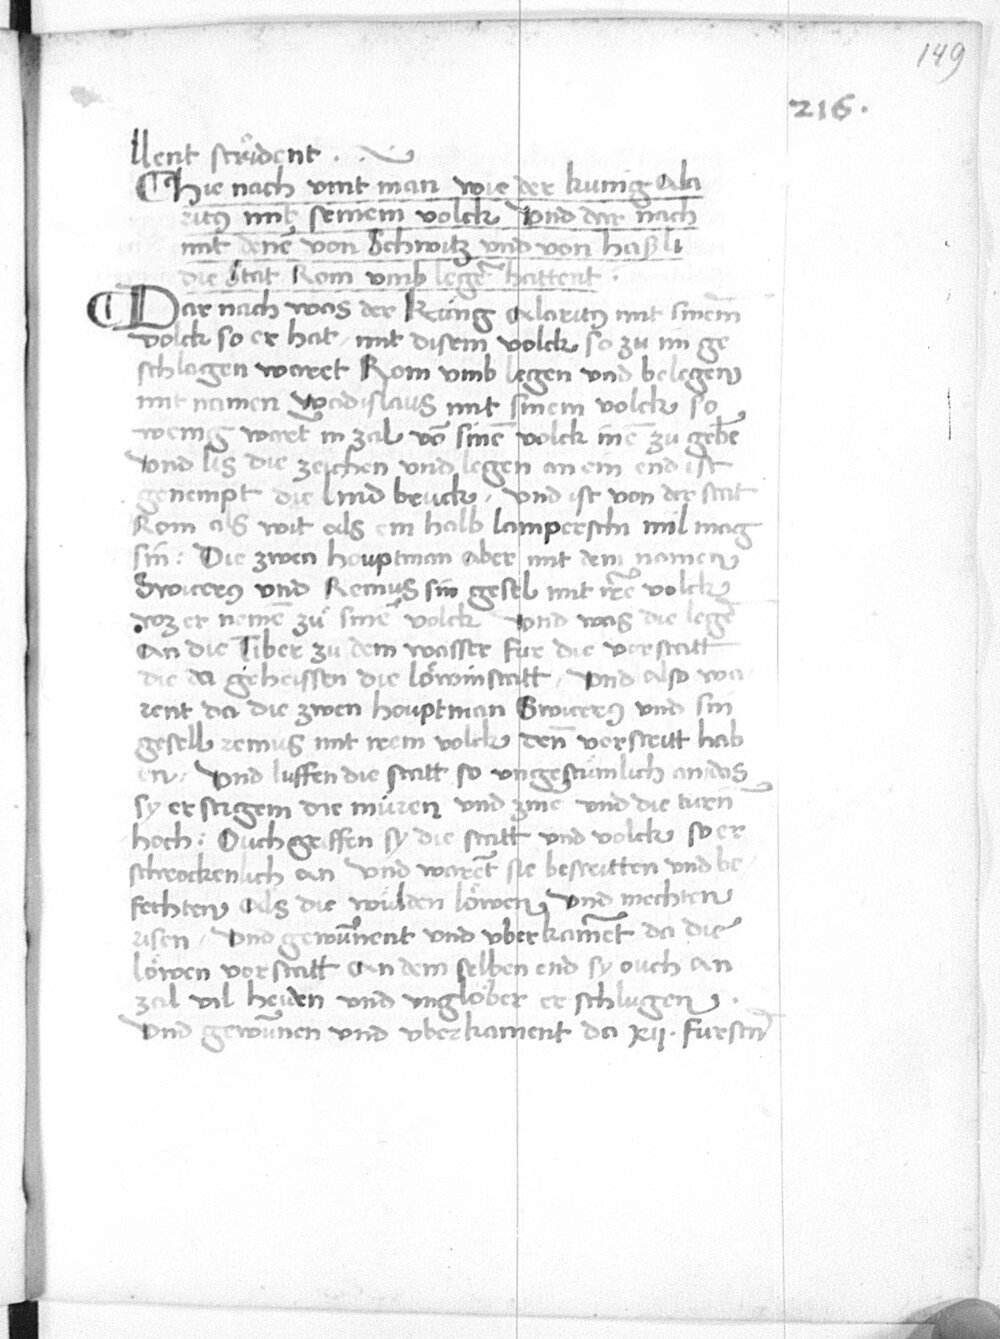 149
216.
llent strident .
Hie nach vint man wie der kunig Ala
ricus mit seinem volck Vnd dar nach
mit denē von Schwitz vnd von haßli
die Stat Rom vmb legēt hattent .
Dar nach was der Küng Alaricus mit sinem
volck so er hat / mit disem volck so zu im ge
schlagen waret Rom vmb legen vnd belegen
mit namen Wadislaus mit sinem volck so
wenig waret in zal vō sinē volck inē zu gebē
Vnd lis die zeichen vnd legen an ein end ist
genempt die lind bruck / vnd ist von der stat
Rom als wit als ein halb lamperschi mil mag
sin : Die zwen houptman aber mit dem namen
Swicerus vnd Remus sin gesel mit irē volck
wz er nemē zů sinē volck Vnd was die legē
An die Tiber zu dem wasser fur die vorstatt
die da geheissen die löwinstatt / Vnd also wa
rent da die zwen houptman Swicerus vnd sin
gesell remus mit irem volck den vorstritt hab
en / Vnd luffen die statt so vngestümlich an das
sy er stigent die müren vnd zinē vnd die turn
hoch : Ouch griffen sy die statt vnd volck so er
schrockenlich an Vnd warēt sie bestritten vnd be
fechten Als die wülden löwen Vnd mechten
risen / Vnd gewunnent vnd vberkamēt da die
löwen vorstatt An dem selben end sy ouch an
zal vil heiden vnd vnglöber er schlugen .
Vnd gewunnen vnd vberkament da xij . fursten